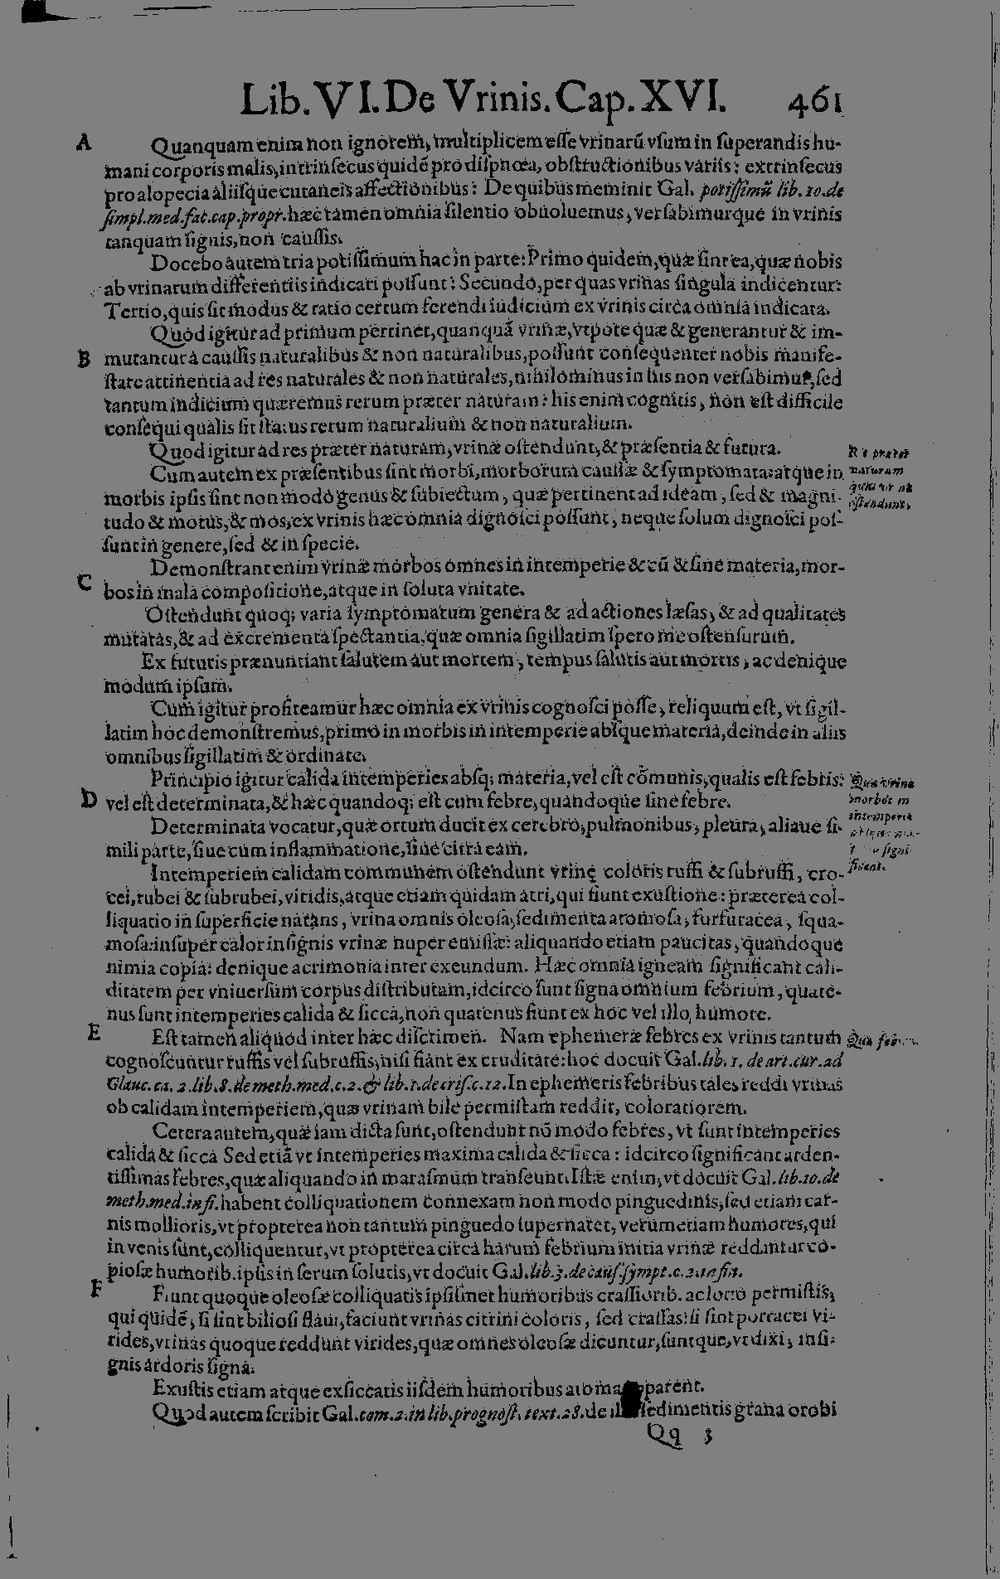 Lib. VI. De Vrinis. Cap. XVI. 461
A Quanquam enim non ignorem, multiplicem esse vrinarū vsum in superandis hu-
mani corporis malis, intrinsecus quidē pro dispnœa, obstructionibus variis: extrinsecus
pro alopecia aliisque cutaneis affectionibus: De quibus meminit Gal. potissimū lib. 10. de
simpl. med. fac. cap. propr. hæc tamen omnia silentio obuoluemus, versabimurque in vrinis
tanquam signis, non caussis.
Docebo autem tria potissimum hac in parte: Primo quidem, quæ sint ea, quæ nobis
ab vrinarum differentiis indicari possunt: Secundò, per quas vrinas singula indicentur:
Tertio, quis sit modus & ratio certum ferendi iudicium ex vrinis circa omnia indicata.
Quod igitur ad primum pertinet, quanquā vrinæ, vtpote quæ & generantur & im-
B mutantur à caussis naturalibus & non naturalibus, possunt consequenter nobis manife-
stare attinentia ad res naturales & non naturales, nihilominus in his non versabimur, sed
tantum indicium quæremus rerum præter naturam: his enim cognitis, non est difficile
consequi qualis sit status rerum naturalium & non naturalium.
Quod igitur ad res præter naturam, vrinæ ostendunt, & præsentia & futura.
Cum autem ex præsentibus sint morbi, morborum caussæ & symptomata: atque in
morbis ipsis sint non modò genus & subiectum, quæ pertinent ad ideam, sed & magni-
tudo & motus, & mos, ex vrinis hæc omnia dignosci possunt, neque solum dignosci pos-
sunt in genere, sed & in specie.
Demonstrant enim vrinæ morbos omnes in intemperie & cū & sine materia, mor-
C bos in mala compositione, atque in soluta vnitate.
Ostendunt quoq; varia symptomatum genera & ad actiones læsas, & ad qualitates
mutatas, & ad excrementa spectantia, quæ omnia sigillatim spero me ostensurum.
Ex futuris prænuntiant salutem aut mortem, tempus salutis aut mortis, ac denique
modum ipsum.
Cum igitur profiteamur hæc omnia ex vrinis cognosci posse, reliquum est, vt sigil-
latim hoc demonstremus, primo in morbis in intemperie absque materia, deinde in aliis
omnibus sigillatim & ordinate.
Principio igitur calida intemperies absq; materia, vel est cōmunis, qualis est febris:
D vel est determinata, & hæc quandoq; est cum febre, quandoque sine febre.
Determinata vocatur, quæ ortum ducit ex cerebro, pulmonibus, pleura, aliaue si-
mili parte, siue cum inflammatione, siue citra eam.
Intemperiem calidam communem ostendunt vrinę coloris ruffi & subruffi, cro-
cei, rubei & subrubei, viridis, atque etiam quidam atri, qui fiunt exustione: præterea col-
liquatio in superficie natans, vrina omnis oleosa, sedimenta aromosa, furfuracea, squa-
mosa: insuper calor insignis vrinæ nuper emissæ: aliquando etiam paucitas, quandoque
nimia copia: denique acrimonia inter exeundum. Hæc omnia igneam significant cali-
ditatem per vniuersum corpus distributam, idcirco sunt signa omnium febrium, quate-
nus sunt intemperies calida & sicca, non quatenus fiunt ex hoc vel illo humore.
E Est tamen aliquod inter hæc discrimen. Nam ephemeræ febres ex vrinis tantum
cognoscuntur ruffis vel subruffis, nisi fiant ex cruditate: hoc docuit Gal. lib. 1. de art. cur. ad
Glauc. ca. 2. lib. 8. de meth. med. c. 2. & lib. 1. de cris. c. 12. In ephemeris febribus tales reddi vrinas
ob calidam intemperiem, quæ vrinam bile permistam reddit, coloratiorem.
Cetera autem, quæ iam dicta sunt, ostendunt nō modo febres, vt sunt intemperies
calida & sicca Sed etiā vt intemperies maxima calida & sicca: idcirco significant arden-
tissimas febres, quæ aliquando in marasmum transeunt. Istæ enim, vt docuit Gal. lib. 10. de
meth. med. in fi. habent colliquationem connexam non modo pinguedinis, sed etiam car-
nis mollioris, vt propterea non tantum pinguedo supernatet, verum etiam humores, qui
in venis sunt, colliquentur, vt propterea circa harum febrium initia vrinæ reddantur co-
piosæ humorib. ipsis in serum solutis, vt docuit Gal. lib. 3. de caus. sympt. c. 2. in fin.
F Fiunt quoque oleosæ colliquatis ipsismet humoribus crassiorib. ac lotio permistis,
qui quidē, si sint biliosi flaui, faciunt vrinas citrini coloris, sed crassas: si sint porracei vi-
rides, vrinas quoque reddunt virides, quæ omnes oleosæ dicuntur, suntque, vt dixi, insi-
gnis ardoris signa.
Exustis etiam atque exsiccatis iisdem humoribus aroma parent.
Quod autem scribit Gal. com. 2. in lib. prognost. text. 28. de sedimentis grana orobi
Qq 3
præter
naturam
ostendunt.
Qua vrinæ
morbos in
intemperie